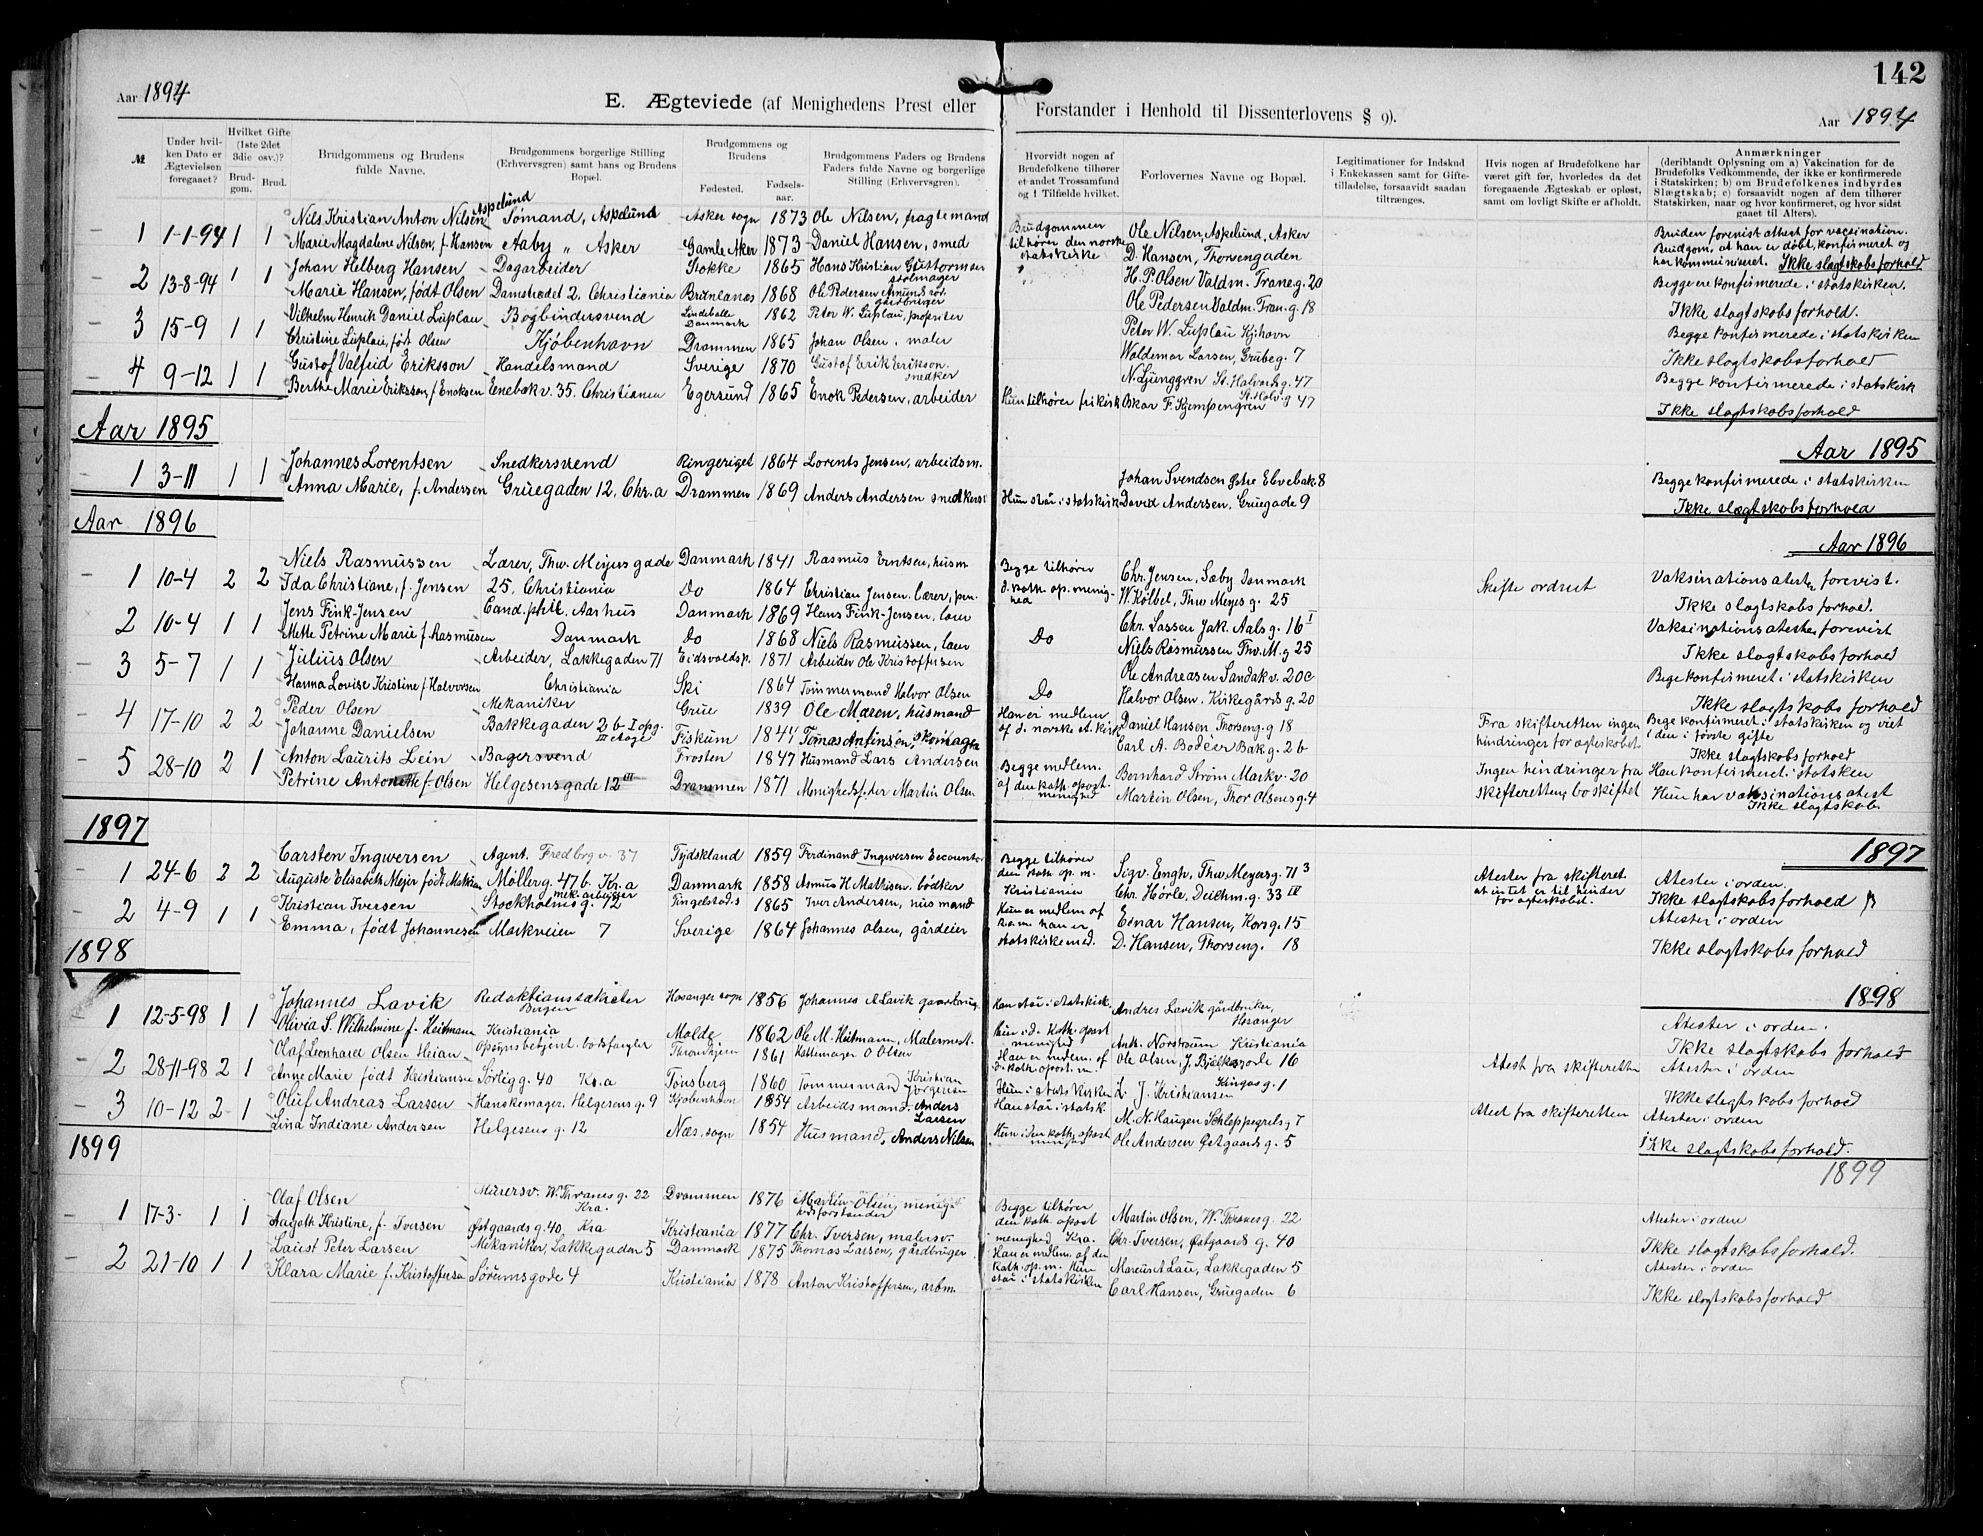 142
Aar 1894
E. Ægteviede (af Menighedens Prest eller Forstander i Henhold til Dissenterlovens § 9).
Aar 1894
№
Under hvilken Dato er Ægtevielsen foregaaet?
Hvilket Gifte (1ste 2det 3die osv.)?
Brudgom.
Brud.
Brudgommens og Brudens fulde Navne.
Brudgommens borgerlige Stilling (Erhvervsgren) samt hans og Brudens Bopæl.
Brudgommens og Brudens
Fødested.
Fødselsaar.
Brudgommens Faders og Brudens Faders fulde Navne og borgerlige Stilling (Erhvervsgren).
Hvorvidt nogen af Brudefolkene tilhører et andet Trossamfund og i Tilfælde hvilket.
Forlovernes Navne og Bopæl.
Legitimationer for Indskud i Enkekassen samt for Giftetilladelse, forsaavidt saadan tiltrænges.
Hvis nogen af Brudefolkene har været gift før, hvorledes da det foregaaende Ægteskab er opløst, samt om lovligt Skifte er afholdt.
Anmærkninger
(deriblandt Oplysning om a) Vakcination for de Brudefolks Vedkommende, der ikke er konfirmerede i Statskirken; b) om Brudefolkenes indbyrdes Slægtskab; c) forsaavidt nogen af dem tilhører Statskirken, naar og hvor konfirmeret, og hvor sidst gaaet til Alters).
1 1-1-94 1 1 Nils Kristian Anton Nilsen Aspelund Sømand, Aspelund Asker sogn 1873 Ole Nilsen, fragtemand Brudgommen tilhører den norske statskirke Ole Nilsen, Aspelund, Asker Bruden forevist attest for vaccination.
Marie Magdalene Nilsen, f. Hansen Aaby " Asker Gamle Aker 1873 Daniel Hansen, smed D. Hansen, Thorsengaden Brudgom, at han er døbt, konfirmeret og har kommuniseret. Ikke slagtskabsforhold
2 13-8-94 1 1 Johan Helberg Hansen Dagarbeider Stokke 1865 Hans Kristian Guttormsen stolmager " H. P. Olsen Valdm. Traneg. 20
Marie Hansen, født Olsen Damstrædet 2, Christiania Brunlanæs 1868 Ole Pedersen gaardbruger Ole Pedersen Valdm. Tran.g. 18 Begge ere konfirmerede i statskirken. Ikke slagtskabsforhold.
3 15-9 1 1 Vilhelm Henrik Daniel Luplau Bogbindersvend Lindeballe Danmark 1862 Peter W. Luplau, Peter W. Luplau Kjhavn Begge konfirmerede i statskirken
Christine Luplau, født Olsen Kjøbenhavn Drammen 1865 Johan Olsen, maler Waldemar Larsen, Grubeg. 7 Ikke slagtskabsforhold
4 9-12 1 1 Gustof Valfrid Eriksson Handelsmand Sverige 1870 Gustof Erik Erikson snedker N. Ljunggren St. Halvardsg. 47 Begge konfirmerede i statskirk
Berthe Marie Eriksson, f Enoksen Enebak v. 35. Christiania Egersund 1865 Enok Pedersen, arbeider Hun tilhører frikirk Oskar F. Kjempengren St. Halv. g 47 Ikke slagtskabsforhold
Aar 1895
Aar 1895
1 3-11 1 1 Johannes Lorentsen Snedkersvend Ringeriget 1864 Lorents Jensen, arbeidsm. Johan Svendsen Østre Elvebak 8 Begge konfirmerede i statskirken
Anna Marie, f. Andersen Gruegaden 12, Chr.a Drammen 1869 Anders Andersen Hun står i statskirk David Andersen, Gruegade 9 Ikke slægtskabsforhold
Aar 1896
Aar 1896
1 10-4 2 2 Niels Rasmussen Lærer, Thv. Meyersgade Danmark 1841 Rasmus Erntsen, husm Begge tilhører d. kath. ap. menighed Chr. Jensen, Sæby Danmark Skifte ordnet Vaksinationsatester forevist.
Ida Christiane, f. Jensen 25. Christiania Do 1864 Christian Jensen, lærer, W. Kölbel, Thv Meyes g. 25 Ikke slagtskabsforhold.
2 10-4 1 1 Jens Fink-Jensen Cand. phil. Aarhus Danmark 1869 Hans Fink-Jensen, lærer Do Chr. Lassen Jak. Aals g. 16 I Vaksinationsatester forevist
Mette Petrine Marie f. Rasmussen Danmark Do 1868 Niels Rasmussen, lærer Niels Rasmussen Thv. M. g 25 Ikke slagtskabsforhold
3 5-7 1 1 Julius Olsen Arbeider, Lakkegaden 71 Eidsvoldsp. 1871 Arbeider Ole Kristoffersen Do Ole Andreasen Sandak v. 20c Bege konfirmeret i statskirken
Hanna Lovise Kristine f Halvorsen Christiania Ski 1864 Tømmermand Halvor Olsen Halvor Olsen, Kirkegårds g. 20 Ikke slagtskabs forhold
4 17-10 2 2 Peder Olsen Mekaniker Grue 1839 Ole Mæren, husmand Han er medlem af d. norske st. kirk Daniel Hansen, Thorseng. g 18 Fra skifteretten ingen hindringer for ægteskabet Bege konfirmeret i statskirken og viet i den i første gifte
Johanne Danielsen Bakkegaden 2 b-I opg. III etage Fiskum 1844 Tomas Antinsen, Skomager Carl A. Bodeer Bak g. 2 b Ikke slagtskabsforhold
5 28-10 2 1 Anton Laurits Lein Bagersvend Frosten 1847 Husmand Lars Andersen Begge medlem. af den kath. apost. menighed Bernhard Strøm Markv. 20 Ingen hindringer fra skifteretten, bo skiftet Han konfirmeret i statsken
Petrine Antonette f. Olsen Helgesensgade 12 III Drammen 1871 Menighedsf.der Martin Olsen Martin Olsen, Thor Olsens g. 4 Hun har vaksinationsatest Ikke slagtskab.
1897
1897
1 24-6 2 2 Carsten Ingwersen Agent. Fredbrg v. 37 Tydskland 1859 Ferdinand Ingwersen Begge tilhører den kath ap. m. Kristiania Sigv. Engh, Thv Meyersg. 71 3 Atester fra skifteret at intet er til hinder for ægteskabet. Atester i orden.
Auguste Elisabeth Mejer født Møllerg. 47 b. Kr.a Danmark 1858 Asmus H Mathisen, bødker Chr. Hörle, Deichm. g. 33 IV Ikke slagtskabsforhold
2 4-9 1 1 Kristian Iversen mek. arbejder Stockholmsg. 12 Tingelstad.s 1865 Iver Andersen, husmand Hun er medlem af han er statskirkemed. Einar Hansen, Korsg. 15 Atester i orden
Emma, født Johannesen Markveien 7 Sverige 1864 Johannes Olsen, gårdeier D. Hansen, Thorseng. 18 Ikke slagtskabs forhold
1898
1898
1 12-5-98 1 1 Johannes Lavik Redaktionssekretær Bergen Hosanger sogn 1856 Johannes A Lavik gaardbrug. Han står i statskirk. Andres Lavik gårdbruker, Hosanger Atester i orden.
Olivia S. Wilhelmine f. Heitmann Kristiania Molde 1862 Ole M. Heitmann, Malerm. Hun i d. kath. apost menighed Ant. Norstrøum Kristiania Ikke slagtskabs forhold
2 28-11-98 2 1 Olaf Leonhard Olsen Heian Opsynsbetjent. bodsfengler Trondhjem 1861 Hattemager O Olsen Han er medlem. af d. kath apost. m. Ole Olsen, J. Bjelkesgade 16 Atest fra skifteretten Atester i orden
Anne Marie født Kristiansen Sørlig g. 40 Kr.a Tønsberg 1860 Tømmermand Kristian Jørgensen Hun i stats kirken L. J. Kristiansen Kingos g. 1 Ikke slagtskabs forhold
3 10-12 2 1 Oluf Andreas Larsen Hanskemager, Helgesens g. 9 Kjøbenhavn 1854 Arbeidsmand Anders Larsen Han står i statsk. M. N. Haugen Schleppegrels g 7 Atest fra skifteretten Atester i orden
Lina Indiane Andersen Helgesens g. 12 Næs. sogn 1854 Husmand, Anders Nilsen Hun i den kath, apost menighed Ole Andersen Østgaards g. 5 Ikke slagtskabsforhold.
1899
1899
1 17-3- 1 1 Olaf Olsen Murersv. W. Thranes g. 22 Kra. Drammen 1876 Martin Olsen, menighedsforstander Begge tilhører den kath. apost menighed Kra. Martin Olsen, W. Thranes g. 22 Atester i orden
Aagoth Kristine, f. Iversen Østgaards g. 40 Kra Kristiania 1877 Chr. Iversen, malersv. Chr. Iversen, Østgaards g. 40 Ikke slagtskabsforhold.
2 21-10 1 1 Laust Peter Larsen Mekaniker, Lakkegaden 5 Danmark 1875 Thomas Larsen, gårdbruger Han er medlem. af den kath. ap. m. Hun står i statskirken Marcus A Lau, Lakkegaden 5 Atester i orden
Klara Marie f. Kristoffersen Sørumsgade 4 Kristiania 1878 Anton Kristoffersen, arbm. Carl Hansen, Gruegaden 6 Ikke slagtskabsforhold